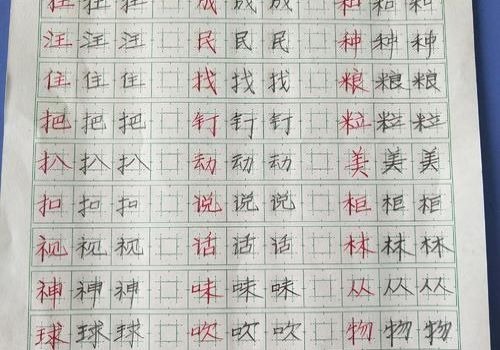 成 成 成 和 和 和
汪 汪 汪 民 民 民 种 种 种
住 住 住 找 找 找 粮 粮 粮
把 把 把 钉 钉 钉 粒 粒 粒
扒 扒 扒 动 动 动 美 美 美
扣 扣 扣 说 说 说 柜 柜 柜
视 视 视 话 话 话 林 林 林
神 神 神 味 味 味 从 从 从
球 球 球 吹 吹 吹 物 物 物